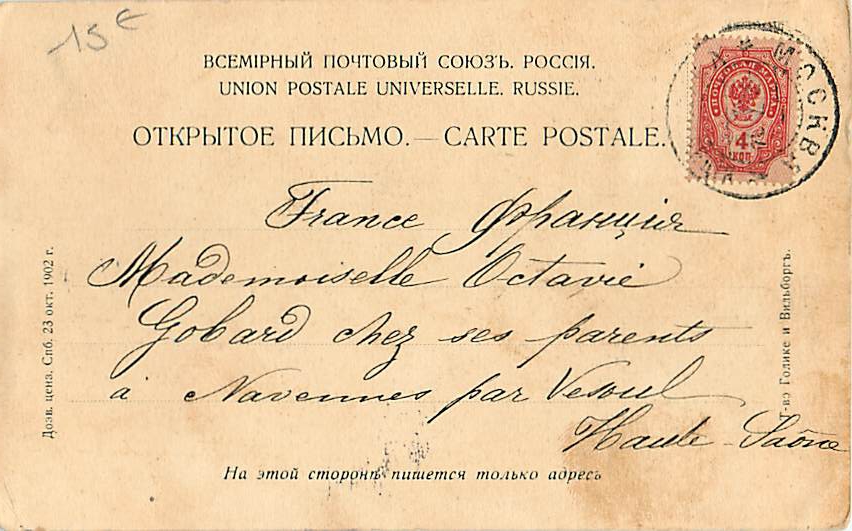 15 €
ВСЕМІРНЫЙ ПОЧТОВЫЙ СОЮЗЪ. РОССІЯ.
UNION POSTALE UNIVERSELLE. RUSSIE.
ОТКРЫТОЕ ПИСЬМО. — CARTE POSTALE.
МОСКВА
ПОЧТОВАЯ МАРКА
4
КОП
France Франція
Mademoiselle Octavie
Gobard chez ses parents
à Navennes par Vesoul
Haute-Saône
Дозв. ценз. Спб. 23 окт. 1902 г.
Т-во Голике и Вильборгъ.
На этой сторонѣ пишется только адресъ